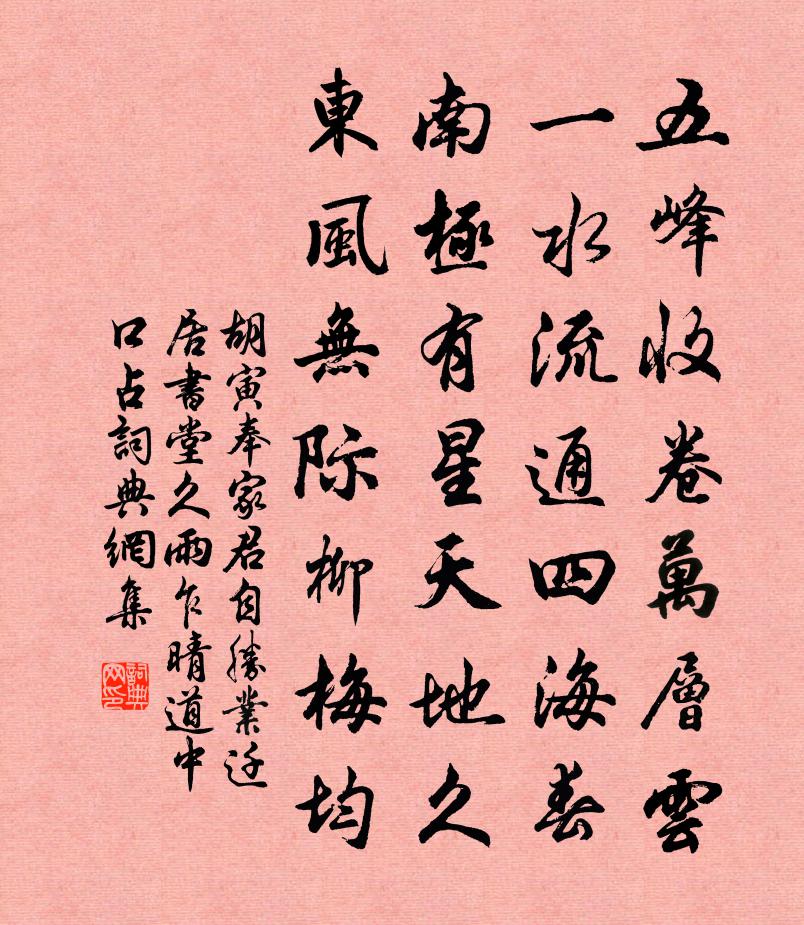 五峰收卷萬層雲
一水流通四海春
南極有星天地久
東風無際柳梅均
胡寅奉家君自勝業迁
居書堂久雨乍晴道中
口占詞典網集
詞典
网印